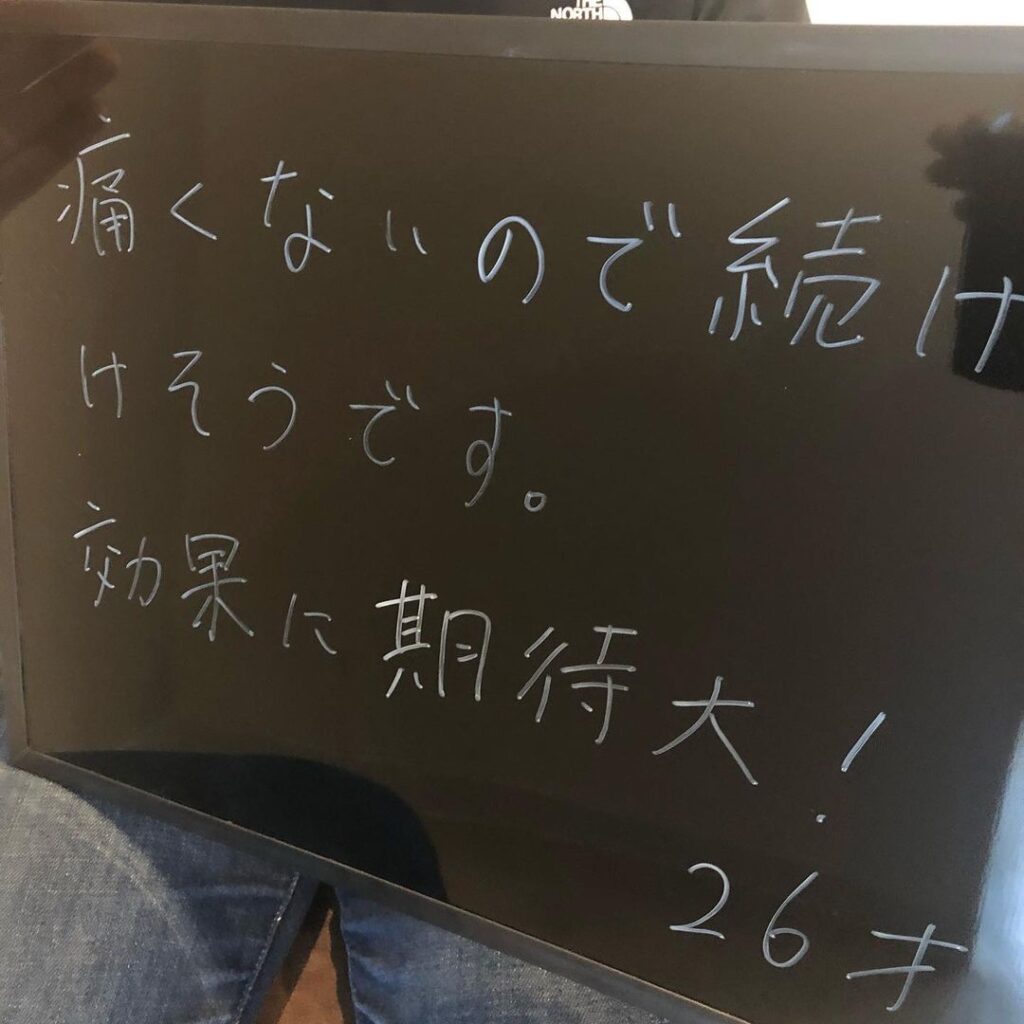 THE
NORTH
痛くないので続け
けそうです。
効果に期待大!
26才